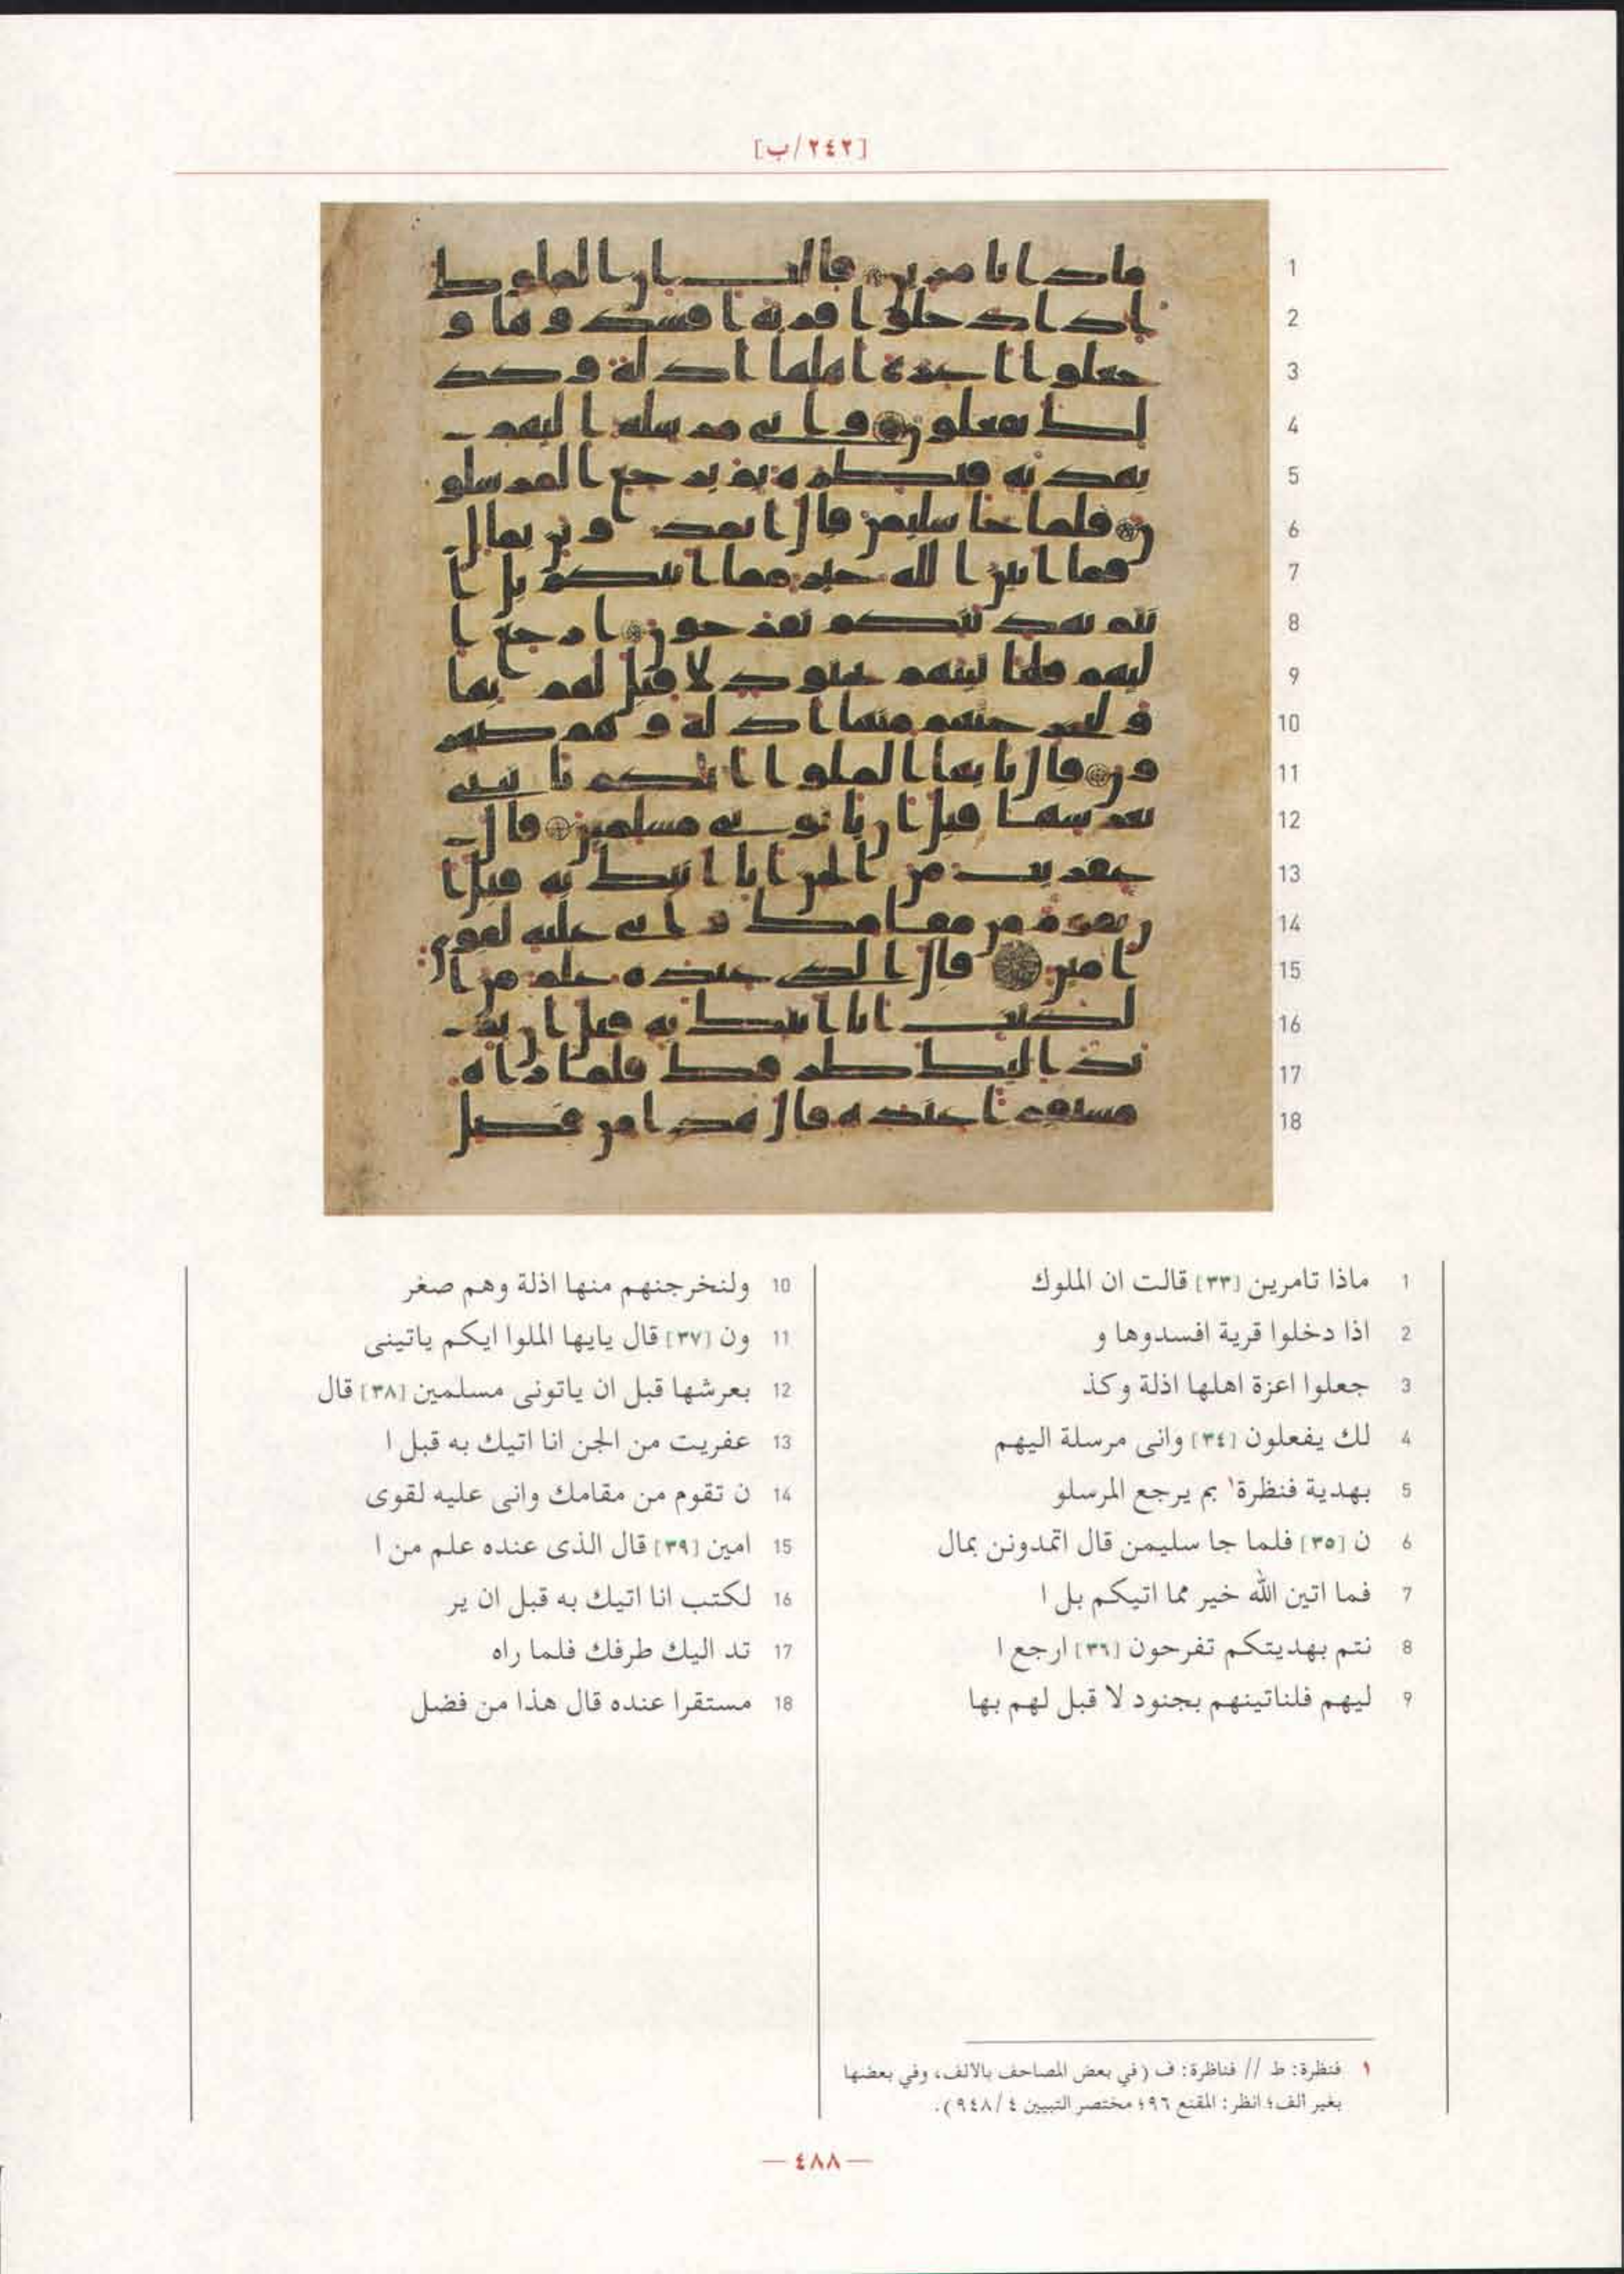 [٢٤٢/ب]
1 ماذا تامرين [٣٣] قالت ان الملوك
2 اذا دخلوا قرية افسدوها و
3 جعلوا اعزة اهلها اذلة وكذ
4 لك يفعلون [٣٤] وانى مرسلة اليهم
5 بهدية فنظرة١ بم يرجع المرسلو
6 ن [٣٥] فلما جا سليمن قال اتمدونن بمال
7 فما اتين الله خير مما اتيكم بل ا
8 نتم بهديتكم تفرحون [٣٦] ارجع ا
9 ليهم فلناتينهم بجنود لا قبل لهم بها
10 ولنخرجنهم منها اذلة وهم صغر
11 ون [٣٧] قال يايها الملوا ايكم ياتينى
12 بعرشها قبل ان ياتونى مسلمين [٣٨] قال
13 عفريت من الجن انا اتيك به قبل ا
14 ن تقوم من مقامك وانى عليه لقوى
15 امين [٣٩] قال الذى عنده علم من ا
16 لكتب انا اتيك به قبل ان ير
17 تد اليك طرفك فلما راه
18 مستقرا عنده قال هذا من فضل
١ فنظرة: ط // فناظرة: ف (في بعض المصاحف بالالف، وفي بعضها
بغير الف؛ انظر: المقنع ٩٦؛ مختصر التبيين ٩٤٨/٤).
— ٤٨٨ —